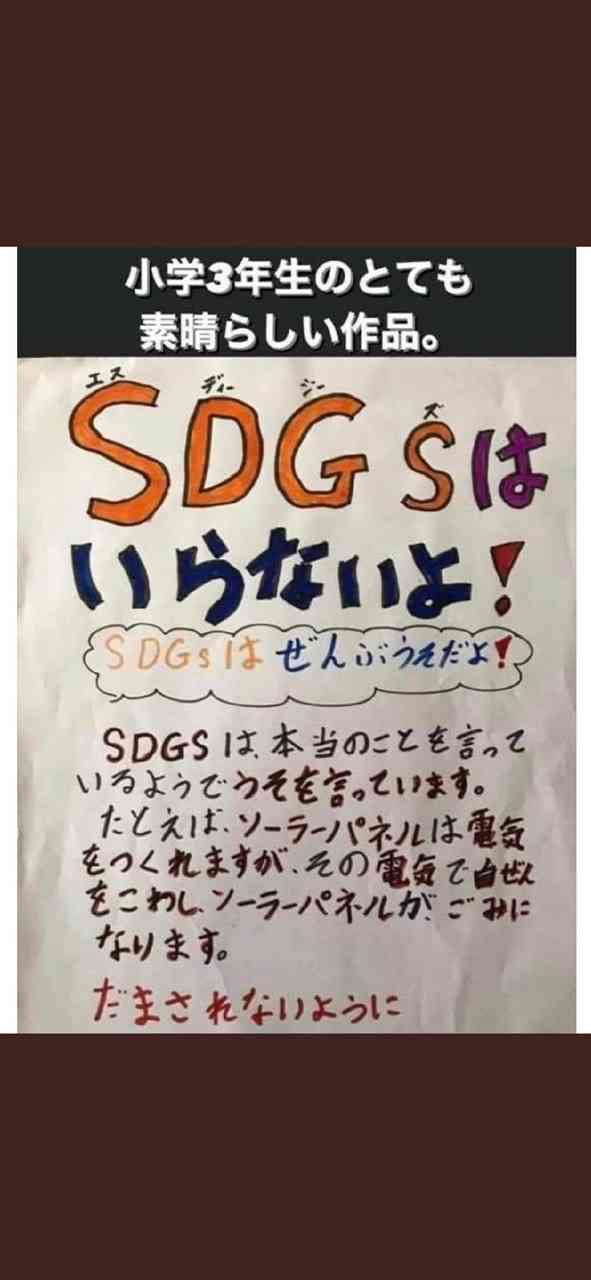 小学3年生のとても
素晴らしい作品。
エス ディー ジー ズ
SDGsは
いらないよ!
SDGsはぜんぶうそだよ!
SDGSは、本当のことを言って
いるようでうそを言っています。
たとえば、ソーラーパネルは電気
をつくれますが、その電気で自ぜん
をこわし、ソーラーパネルが、ごみに
なります。
だまされないように